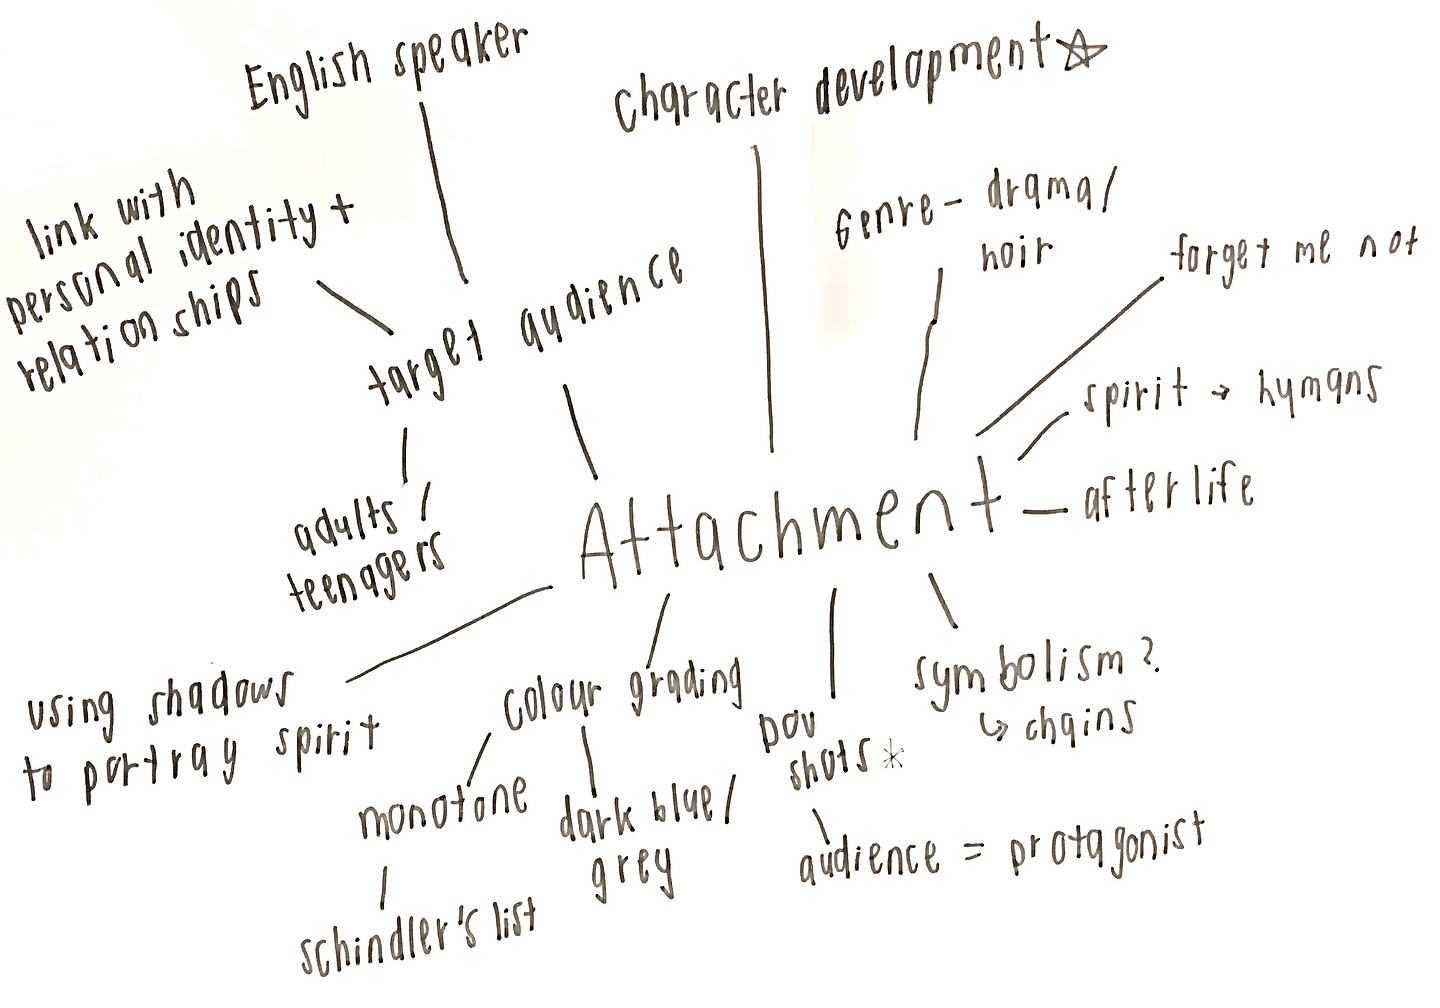 English speaker
character development☆
link with
personal identity +
relationships
Genre - drama/
noir
forget me not
target audience
spirit → humans
adults /
teenagers
Attachment
afterlife
using shadows
to portray spirit
colour grading
monotone
dark blue/
grey
schindler's list
pov
shots *
audience = protagonist
symbolism?
↳ chains